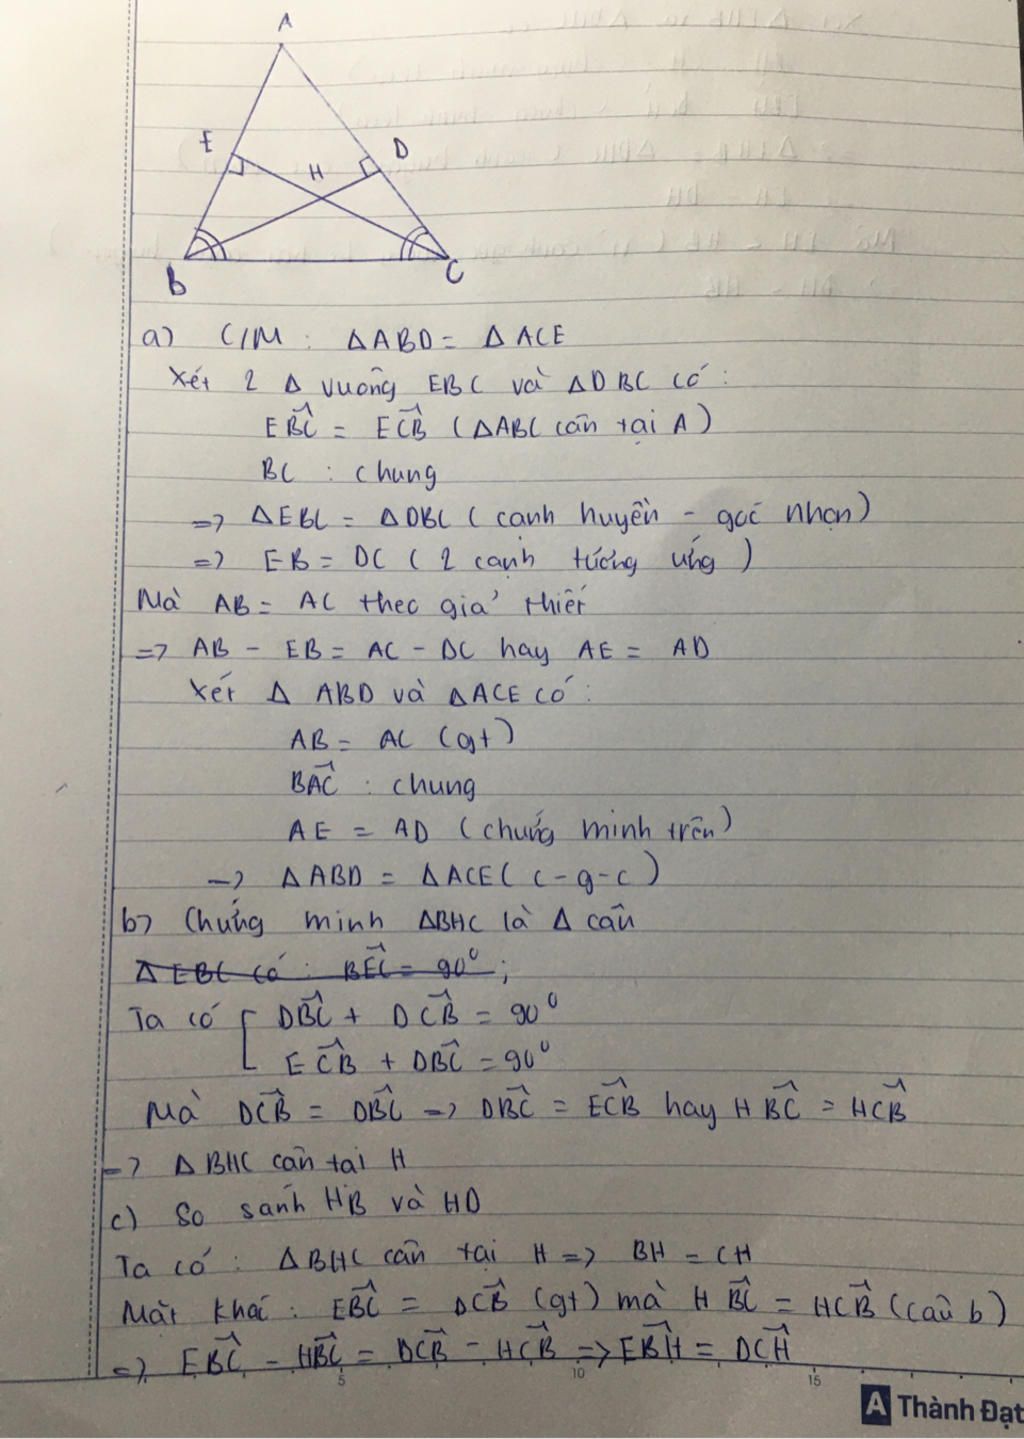 A
E
D
H
B
C
a) C/M : ΔABD = ΔACE
Xét 2 Δ vuông EBC và ΔDBC có :
EB̂C = EĈB (ΔABC cân tại A)
BC : chung
=> ΔEBC = ΔDBC (cạnh huyền - góc nhọn)
=> EB = DC (2 cạnh tương ứng)
Mà AB = AC theo giả thiết
=> AB - EB = AC - DC hay AE = AD
Xét Δ ABD và ΔACE có :
AB = AC (gt)
BÂC : chung
AE = AD (chứng minh trên)
-> ΔABD = ΔACE (c-g-c)
b) Chứng minh ΔBHC là Δ cân
ΔEBC có : BÊC = 90° ;
Ta có [ DB̂C + DĈB = 90°
EĈB + DB̂C = 90°
Mà DĈB = DB̂C => DB̂C = EĈB hay HB̂C = HĈB
=> ΔBHC cân tại H
c) So sánh HB và HD
Ta có : ΔBHC cân tại H => BH = CH
Mặt khác : EB̂C = DĈB (gt) mà HB̂C = HĈB (câu b)
=> EB̂C - HB̂C = DĈB - HĈB => EB̂H = DĈH
5 10 15
A Thành Đạt